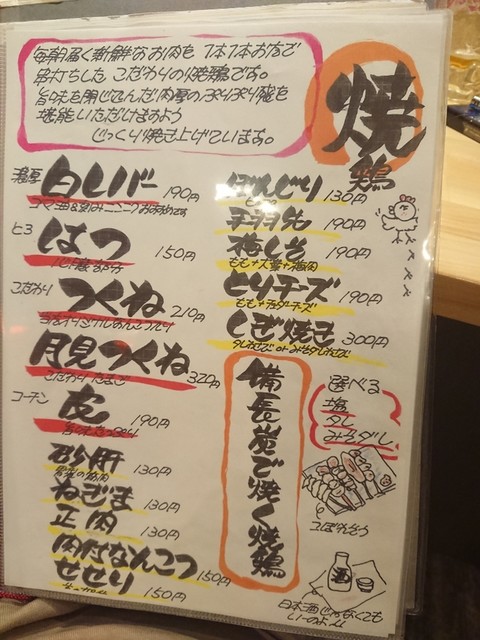 毎朝届く新鮮なお肉を1本1本お店で
串打ちした こだわりの焼鶏です。
旨味を閉じ込めた肉厚のぷりぷり鶏を
堪能いただけますよう
じっくり焼き上げています。
焼
鶏
濃厚 白レバー 190円
ゴマ油&刻みニンニクおすすめです
はつ 150円
心臓部分
こだわり つくね 210円
月見つくね 320円
こだわりたまご
コーチン 皮 190円
砂肝 130円
ねぎま 130円
正肉 130円
肉付なんこつ 150円
せせり 150円
ぼんじり 130円
手羽先 190円
梅しそ 190円
もも+大葉+梅肉
とりチーズ 190円
もも+チェダーチーズ
しぎ焼き 300円
備長炭で焼く焼鶏
選べる
塩
タレ
みそダレ
日本酒じゃなくても
いーのよ
酒